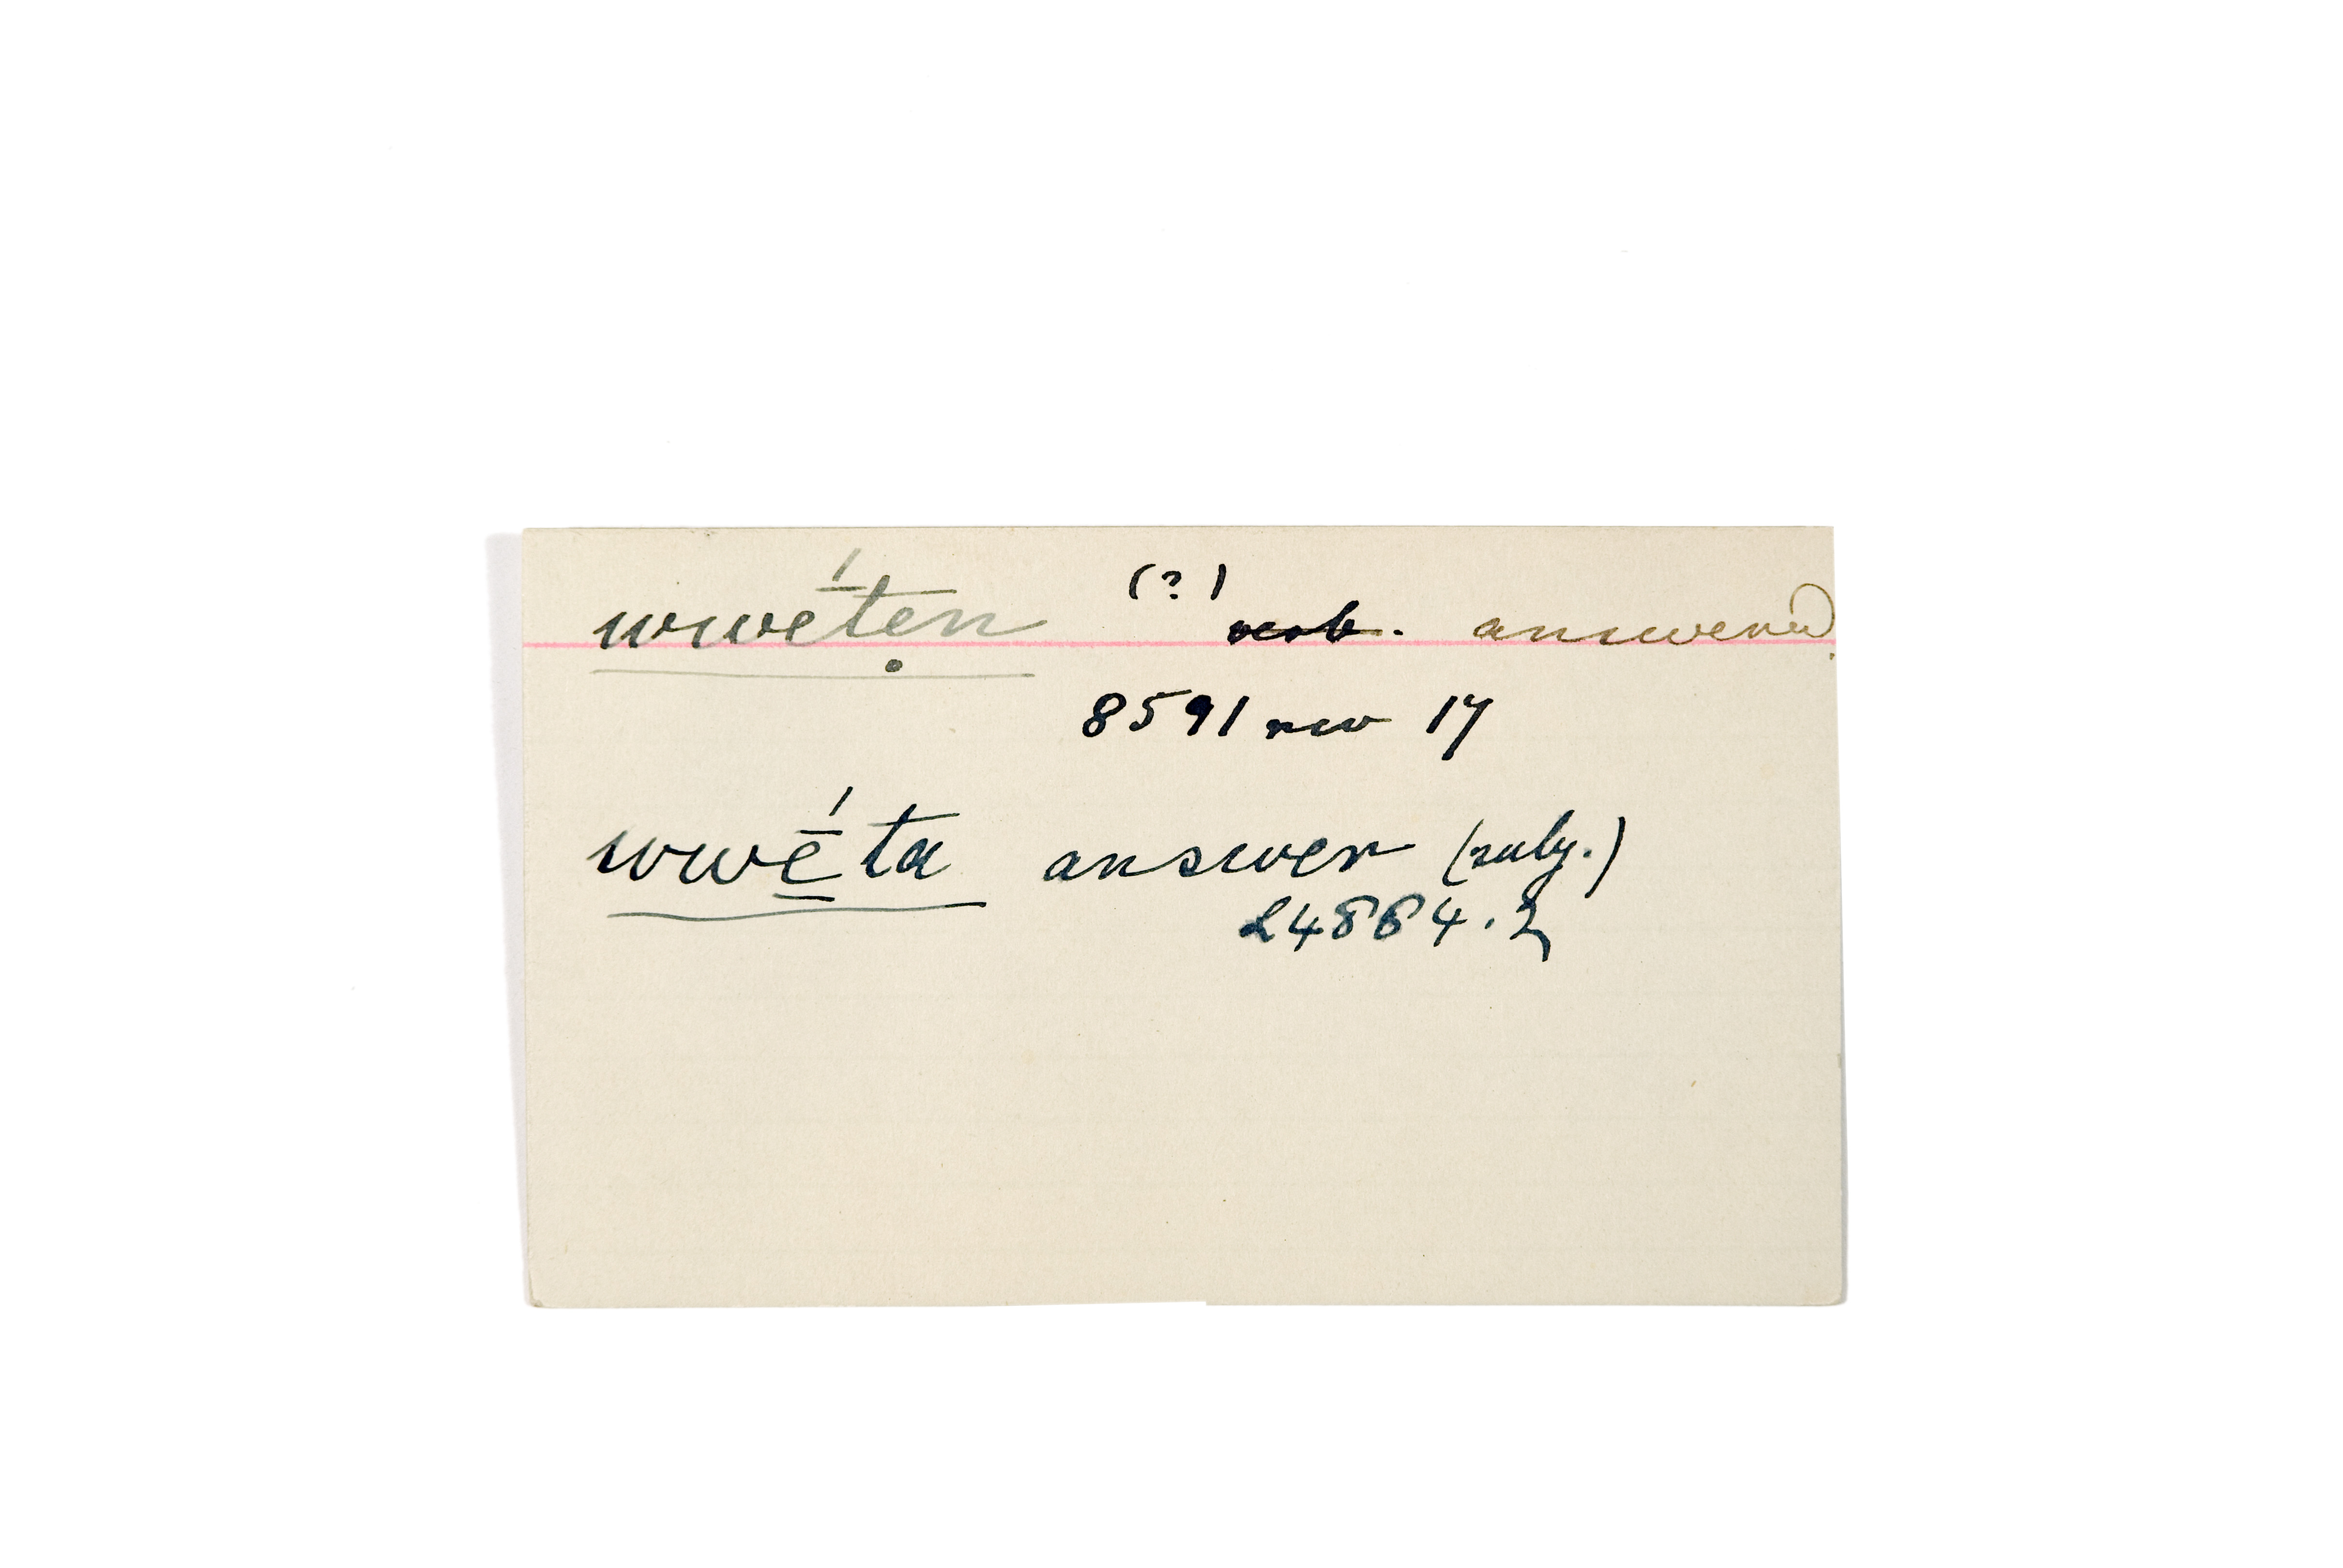 wwḗtẹn (?) verb. answered.
8591 rev 17
wwḗ̱ta answer (subj.)
24864.2